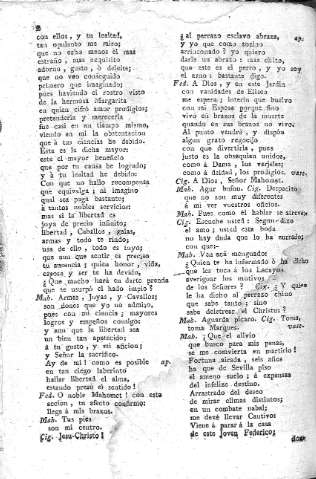 2
con ellos, y tu lealtad,
tan opulento me miro;
que no echo menos el mas
estraño, mas exquisito
adorno, gusto, ò deleite;
que no ven conseguido
primero que imaginado;
pues haviendo el rostro visto
de la hermosa Margarita
en quien cifró amor prodigios;
pretenderla y merecerla
fue casi en un tiempo mismo,
viendo en mi la obstentacion
que à tus ciencias he debido.
Esta es la dicha mayor;
este el mayor beneficio
que por tu causa he logrado;
y à tu lealtad he debido:
Con que no hallo recompensa
que equivalga; ni imagino
qual sea paga bastante
à tantos nobles servicios:
mas si la libertad es
joya de precio infinito;
libertad, Caballos, galas,
armas y todo te rindo;
usa de ello, todo es tuyo;
que aun que sentir es preciso
tu ausencia; quien honor, vida,
esposa y ser te ha devido,
¿Que mucho hará en darte prenda
que te usurpó el hado impío?
Mah. Armas, Joyas, y Cavallos;
son dones que yo no admito,
pues con mi ciencia; mayores
logros y respeños consigo;
y aun que la libertad sea
un bien tan apetecido
à tu gusto, y mi afición;
y Señor la sacrifico.
Ay de mi! como es posible ap.
en tan ciego laberinto
hallar libertad el alma,
estando preso el sentido!
Fed. O noble Mahomet! con esta
accion, tu afecto confirmo:
llega à mis brazos.
Mah. Tus pies
son mi centro.
Cig. Jesu-Christo!
¿al perrazo esclavo abraza, ap.
y yo que como tocino
arrinconado? yo quiero
darle un abrazo à mas chito,
que este es el perro, y yo soy
el amo: bastante digo.
Fed. A Dios, y en este jardin
me espera; interin que buelvo
con mi Esposa porque sino
vivo en brazos de la muerte
quando en sus brazos no vivo:
Al punto vendré, y dispón
algun grato regocijo
con que divertirla, pues
justo es la obsequien unidos,
como à Dama, los vergeles;
como à deidad, los prodigios. vase.
Cig. A Dios, Señor Mahomat.
Mah. Agur bufon. Cig. Despacito;
que no son muy diferentes
à mi ver vuestros oficios.
Mah. Pues como el hablar se atreve?
Cig. Escuche usted: Segun dixo
el amo; usted esta boda
no hay duda que lo ha zurzado;
con que:-
Mah. Vea acá menguado:
¿Quien te ha informado ò ha dicho
que les toca à los Lacayos
averiguar los motivos
de los Señores? Cig. ¿Y quien
le ha dicho al perrazo chino
que sabe tanto; sino
sabe deletrear el Christus?
Mah. Aguarda picaro. Cig. Toma,
toma Margues. vase.
Mah. ¡Que el alivio
que busco para mis penas,
se me convierta en martirio!
Fortuna airada, seis años
ha que de Sevilla piso
el ameno suelo; à espensas
del infeliz destino.
Arrastrado del deseo
de mirar climas distintos,
en un combate naval;
me devó llevar Cautivos
Viene à parar à la casa
de este joven Federico;